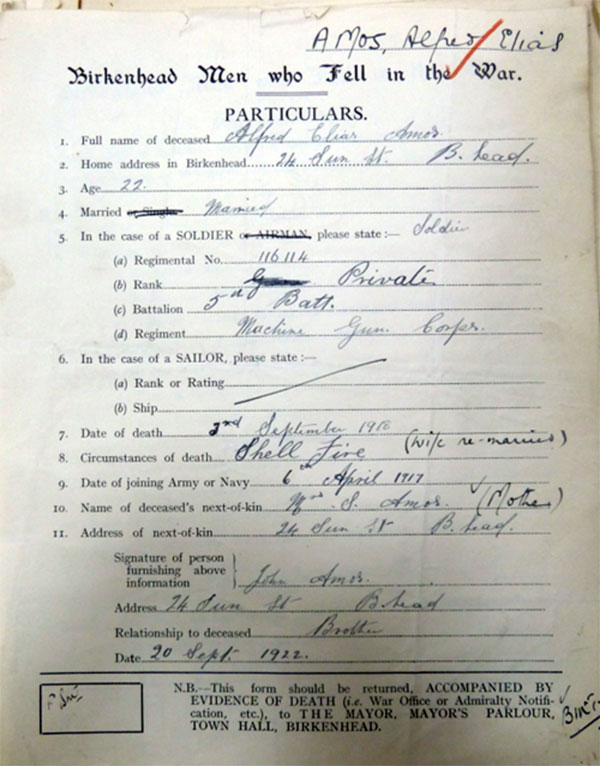 AMOS, Alfred Elias
Birkenhead Men who Fell in the War.
PARTICULARS.
1. Full name of deceased Alfred Elias Amos.
2. Home address in Birkenhead 24 Sun St. B. head.
3. Age 22.
4. Married or Single Married
5. In the case of a SOLDIER or AIRMAN, please state :— Soldier
(a) Regimental No. 116114
(b) Rank Private.
(c) Battalion 5th Batt.
(d) Regiment Machine Gun Corps.
6. In the case of a SAILOR, please state :—
(a) Rank or Rating
(b) Ship
7. Date of death 2nd September 1918
(wife re-married)
8. Circumstances of death Shell Fire
9. Date of joining Army or Navy 6th April 1917
10. Name of deceased's next-of-kin Mrs S. Amos (Mother)
11. Address of next-of-kin 24 Sun St B.head.
Signature of person
furnishing above
information John Amos.
Address 24 Sun St B.head
Relationship to deceased Brother
Date 20 Sept. 1922.
N.B.—This form should be returned, ACCOMPANIED BY
EVIDENCE OF DEATH (i.e. War Office or Admiralty Notifi-
cation, etc.), to THE MAYOR, MAYOR'S PARLOUR,
TOWN HALL, BIRKENHEAD.